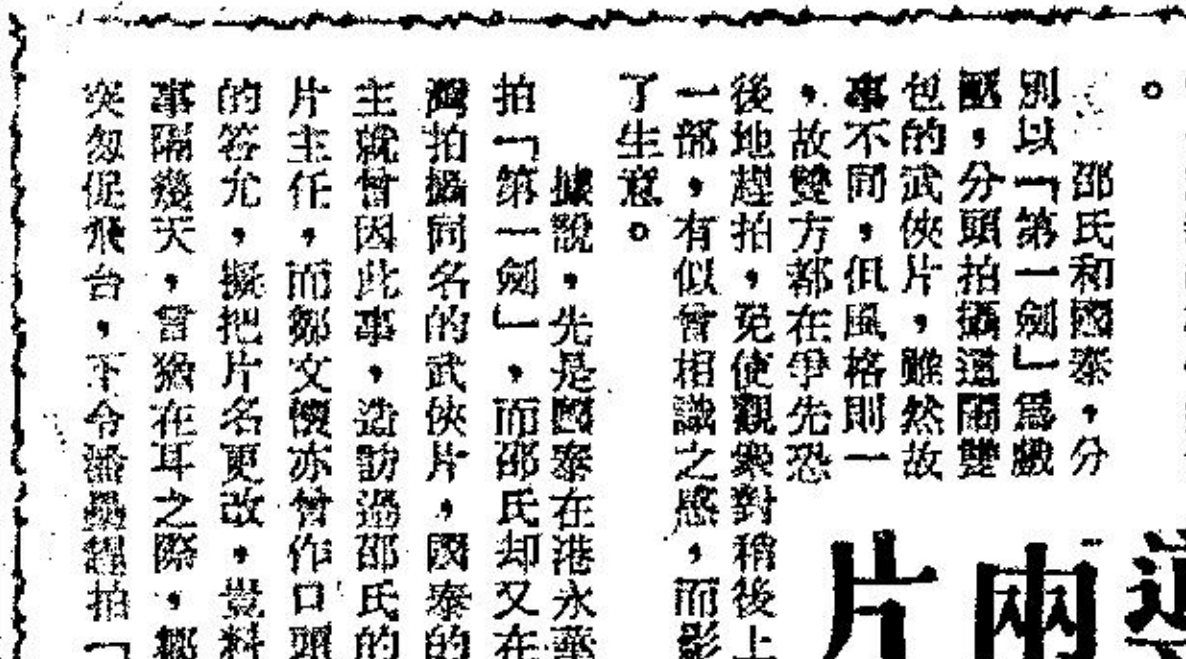 。
邵氏和國泰，分
別以「第一劍」爲戲
匭，分頭拍攝這兩雙
包的武俠片，雖然故
事不同，但風格則一
，故雙方都在爭先恐
後地趕拍，免使觀衆對稍後上
一部，有似曾相識之感，而影
了生意。
據說，先是國泰在港永華
拍「第一劍」，而邵氏却又在
灣拍攝同名的武俠片，國泰的
主就曾因此事，造訪過邵氏的
片主任，而鄒文懷亦曾作口頭
的答允，擬把片名更改，豈料
事隔幾天，言猶在耳之際，鄒
突匆促飛台，下令潘壘趕拍「
這兩片